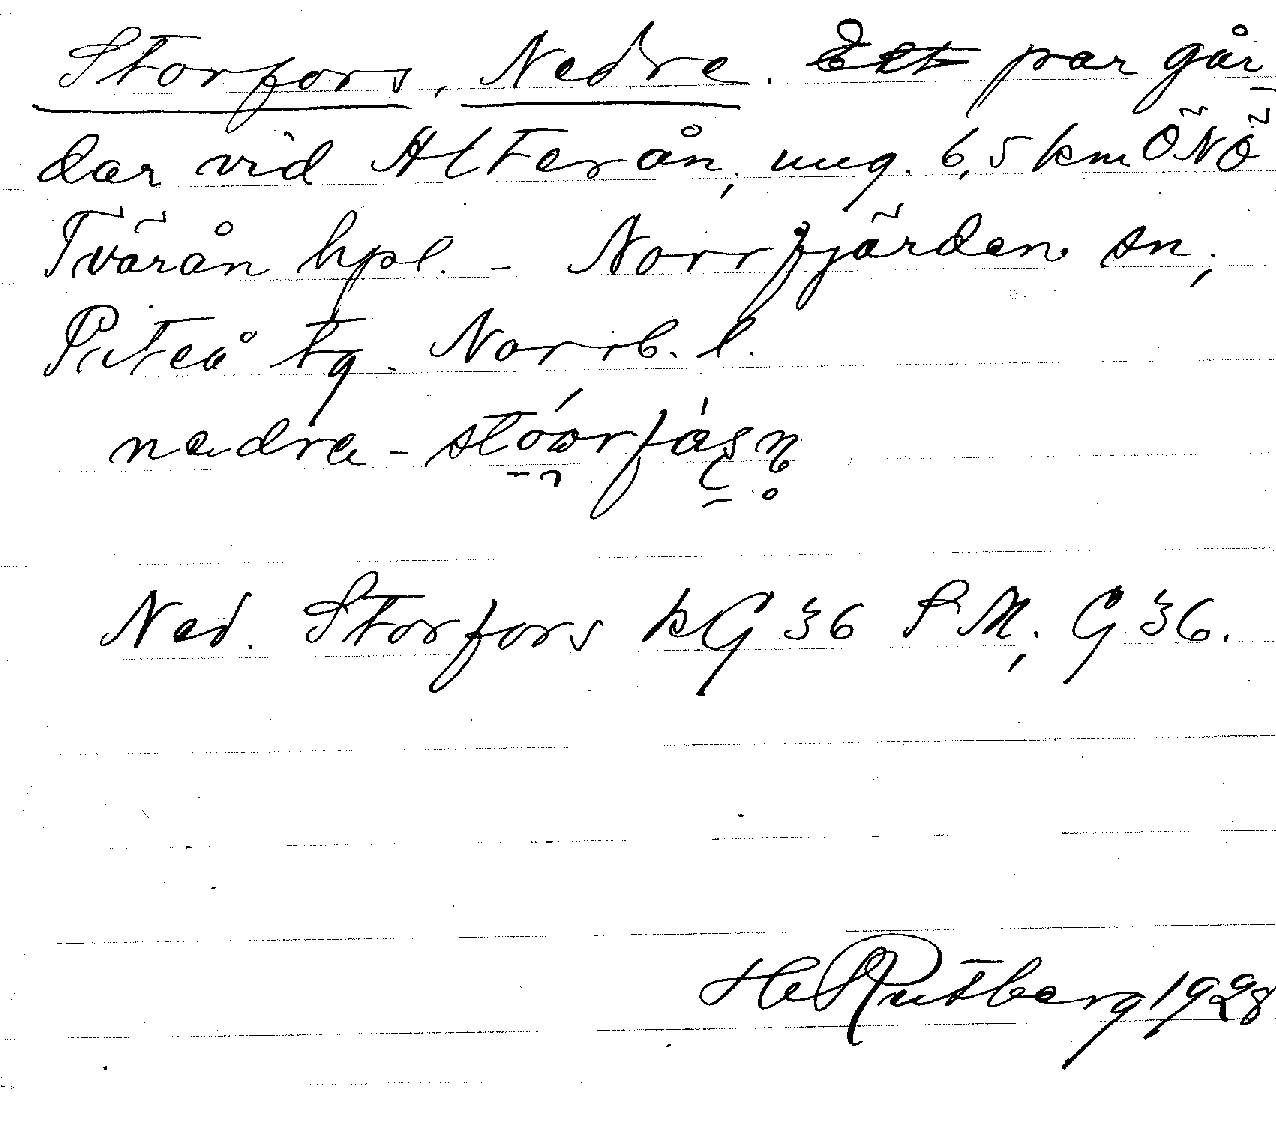 Storfors, Nedre. Ett par går
dar vid Alterån, ung. 6,5 km ÖNÖ
Tvärån hpl. - Norrfjärden sn,
Piteå tg. Norrb. l.
nedre-
Ned. Storfors kG 36 SM; G 36.
H Rutberg 1928